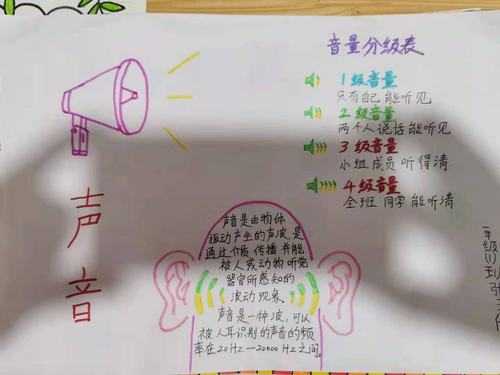 音量分级表
1级音量
只有自己能听见
2级音量
两个人说话能听见
3级音量
小组成员听得清
4级音量
全班同学能听清
声音
声音是由物体
振动产生的声波,是
通过介质传播并能
被人或动物听觉
器官所感知的
波动现象。
声音是一种波,可以
被人耳识别的声音的频
率在20Hz—20000Hz之间。
年级(1)班